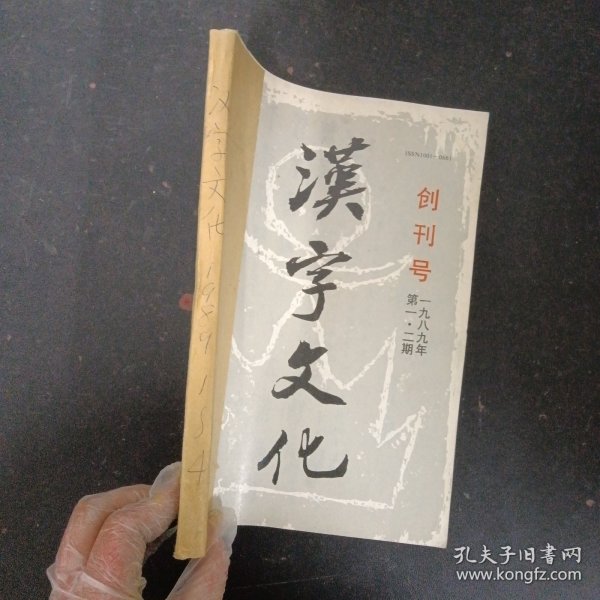 汉字文化 1989 1-4
ISSN1001-0661
漢字文化
创刊号
一九八九年
第一·二期
孔夫子旧書网
www.kongfz.com